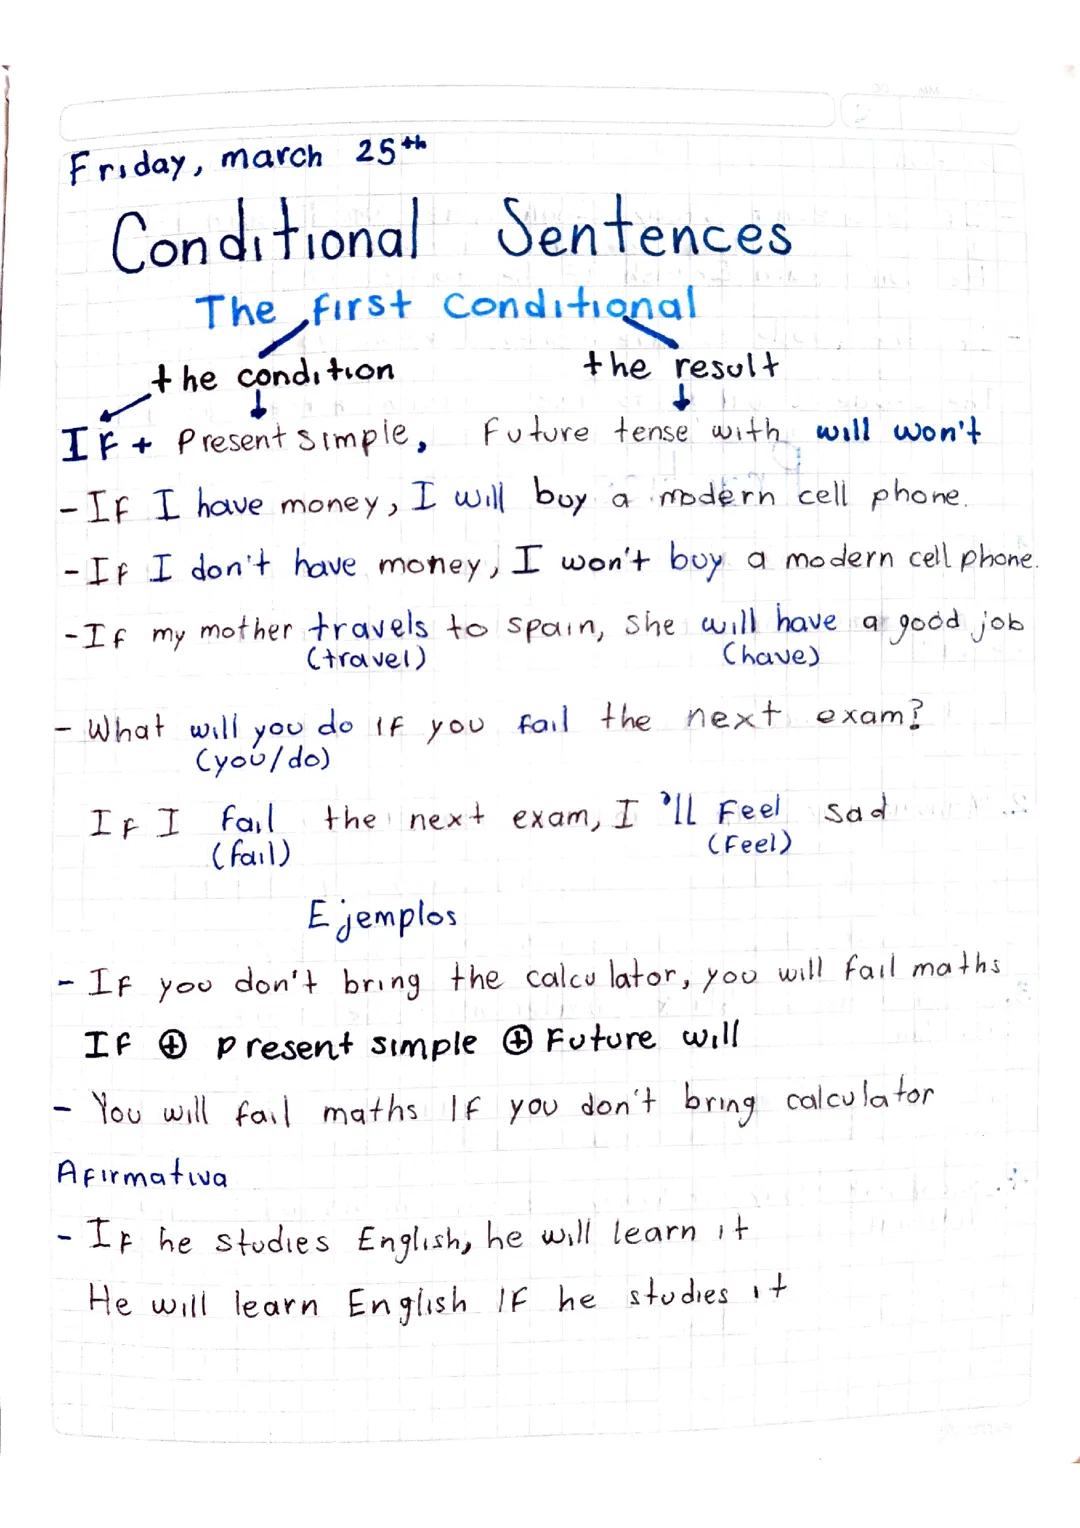 Friday, march 25th
Conditional Sentences
The first conditional
the condition the result
If + Present simple, Future tense with will won't
- If I have money, I will buy a modern cell phone.
- If I don't have money, I won't buy a modern cell phone.
- If my mother travels to spain, she will have a good job
(travel) (have)
- What will you do if you fail the next exam?
(you/do)
If I fail the next exam, I 'll Feel sad
(fail) (Feel)
Ejemplos
- If you don't bring the calculator, you will fail maths
If ⊕ present simple ⊕ Future will
- You will fail maths If you don't bring calculator
Afirmativa
- If he studies English, he will learn it
He will learn English IF he studies it